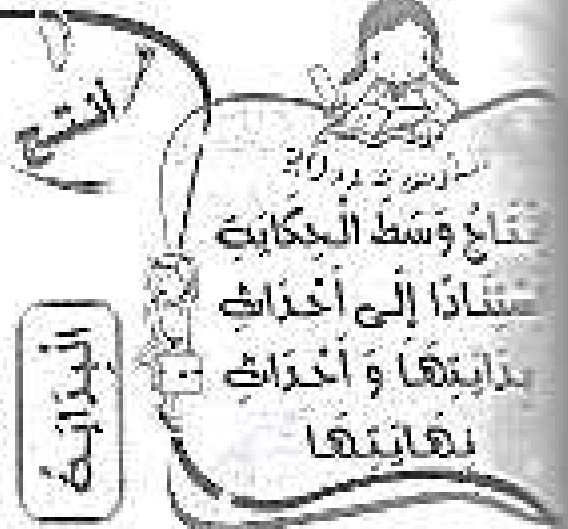 أنتج
الدرس عدد 20
إنتاج وسط الحكاية
استنادا إلى أحداث
بدايتها و أحداث
نهايتها
البداية